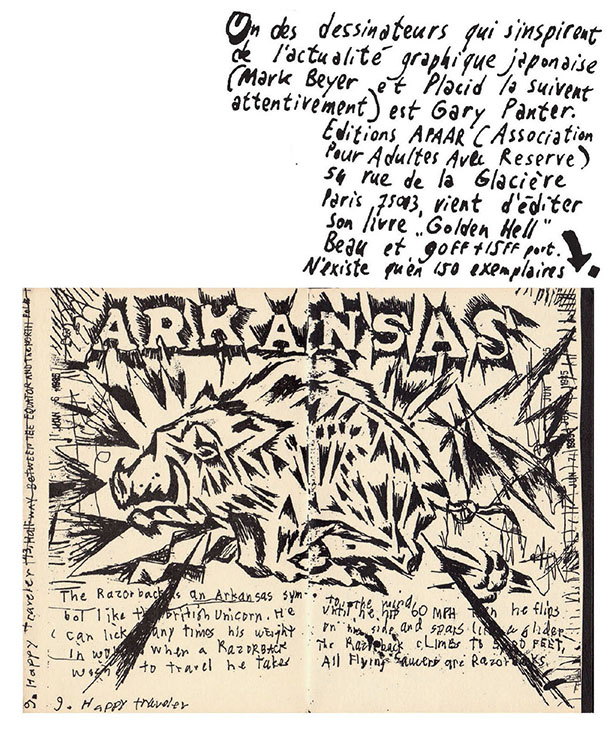 Un des dessinateurs qui s'inspirent
de l'actualité graphique japonaise
(Mark Beyer et Placid la suivent
attentivement) est Gary Panter.
Editions APAAR (Association
Pour Adultes Avec Reserve)
54 rue de la Glacière
Paris 75013, vient d'éditer
son livre „Golden Hell"
Beau et 90FF + 15FF port.
N'existe qu'en 150 exemplaires
ARKANSAS
9. Happy traveler HALFWAY BETWEEN THE EQUATOR AND THE NORTH POLE
The Razorback is an Arkansas sym-
bol like the British Unicorn. He
can lick any times his weight
in when a RAZORBACK
to travel he takes
to the road
until he hits 60 MPH then he flips
on his side and soars like a glider
The Razorback CLIMBS TO FEET,
All Flying Saucers are Razorbacks.
9. Happy traveler